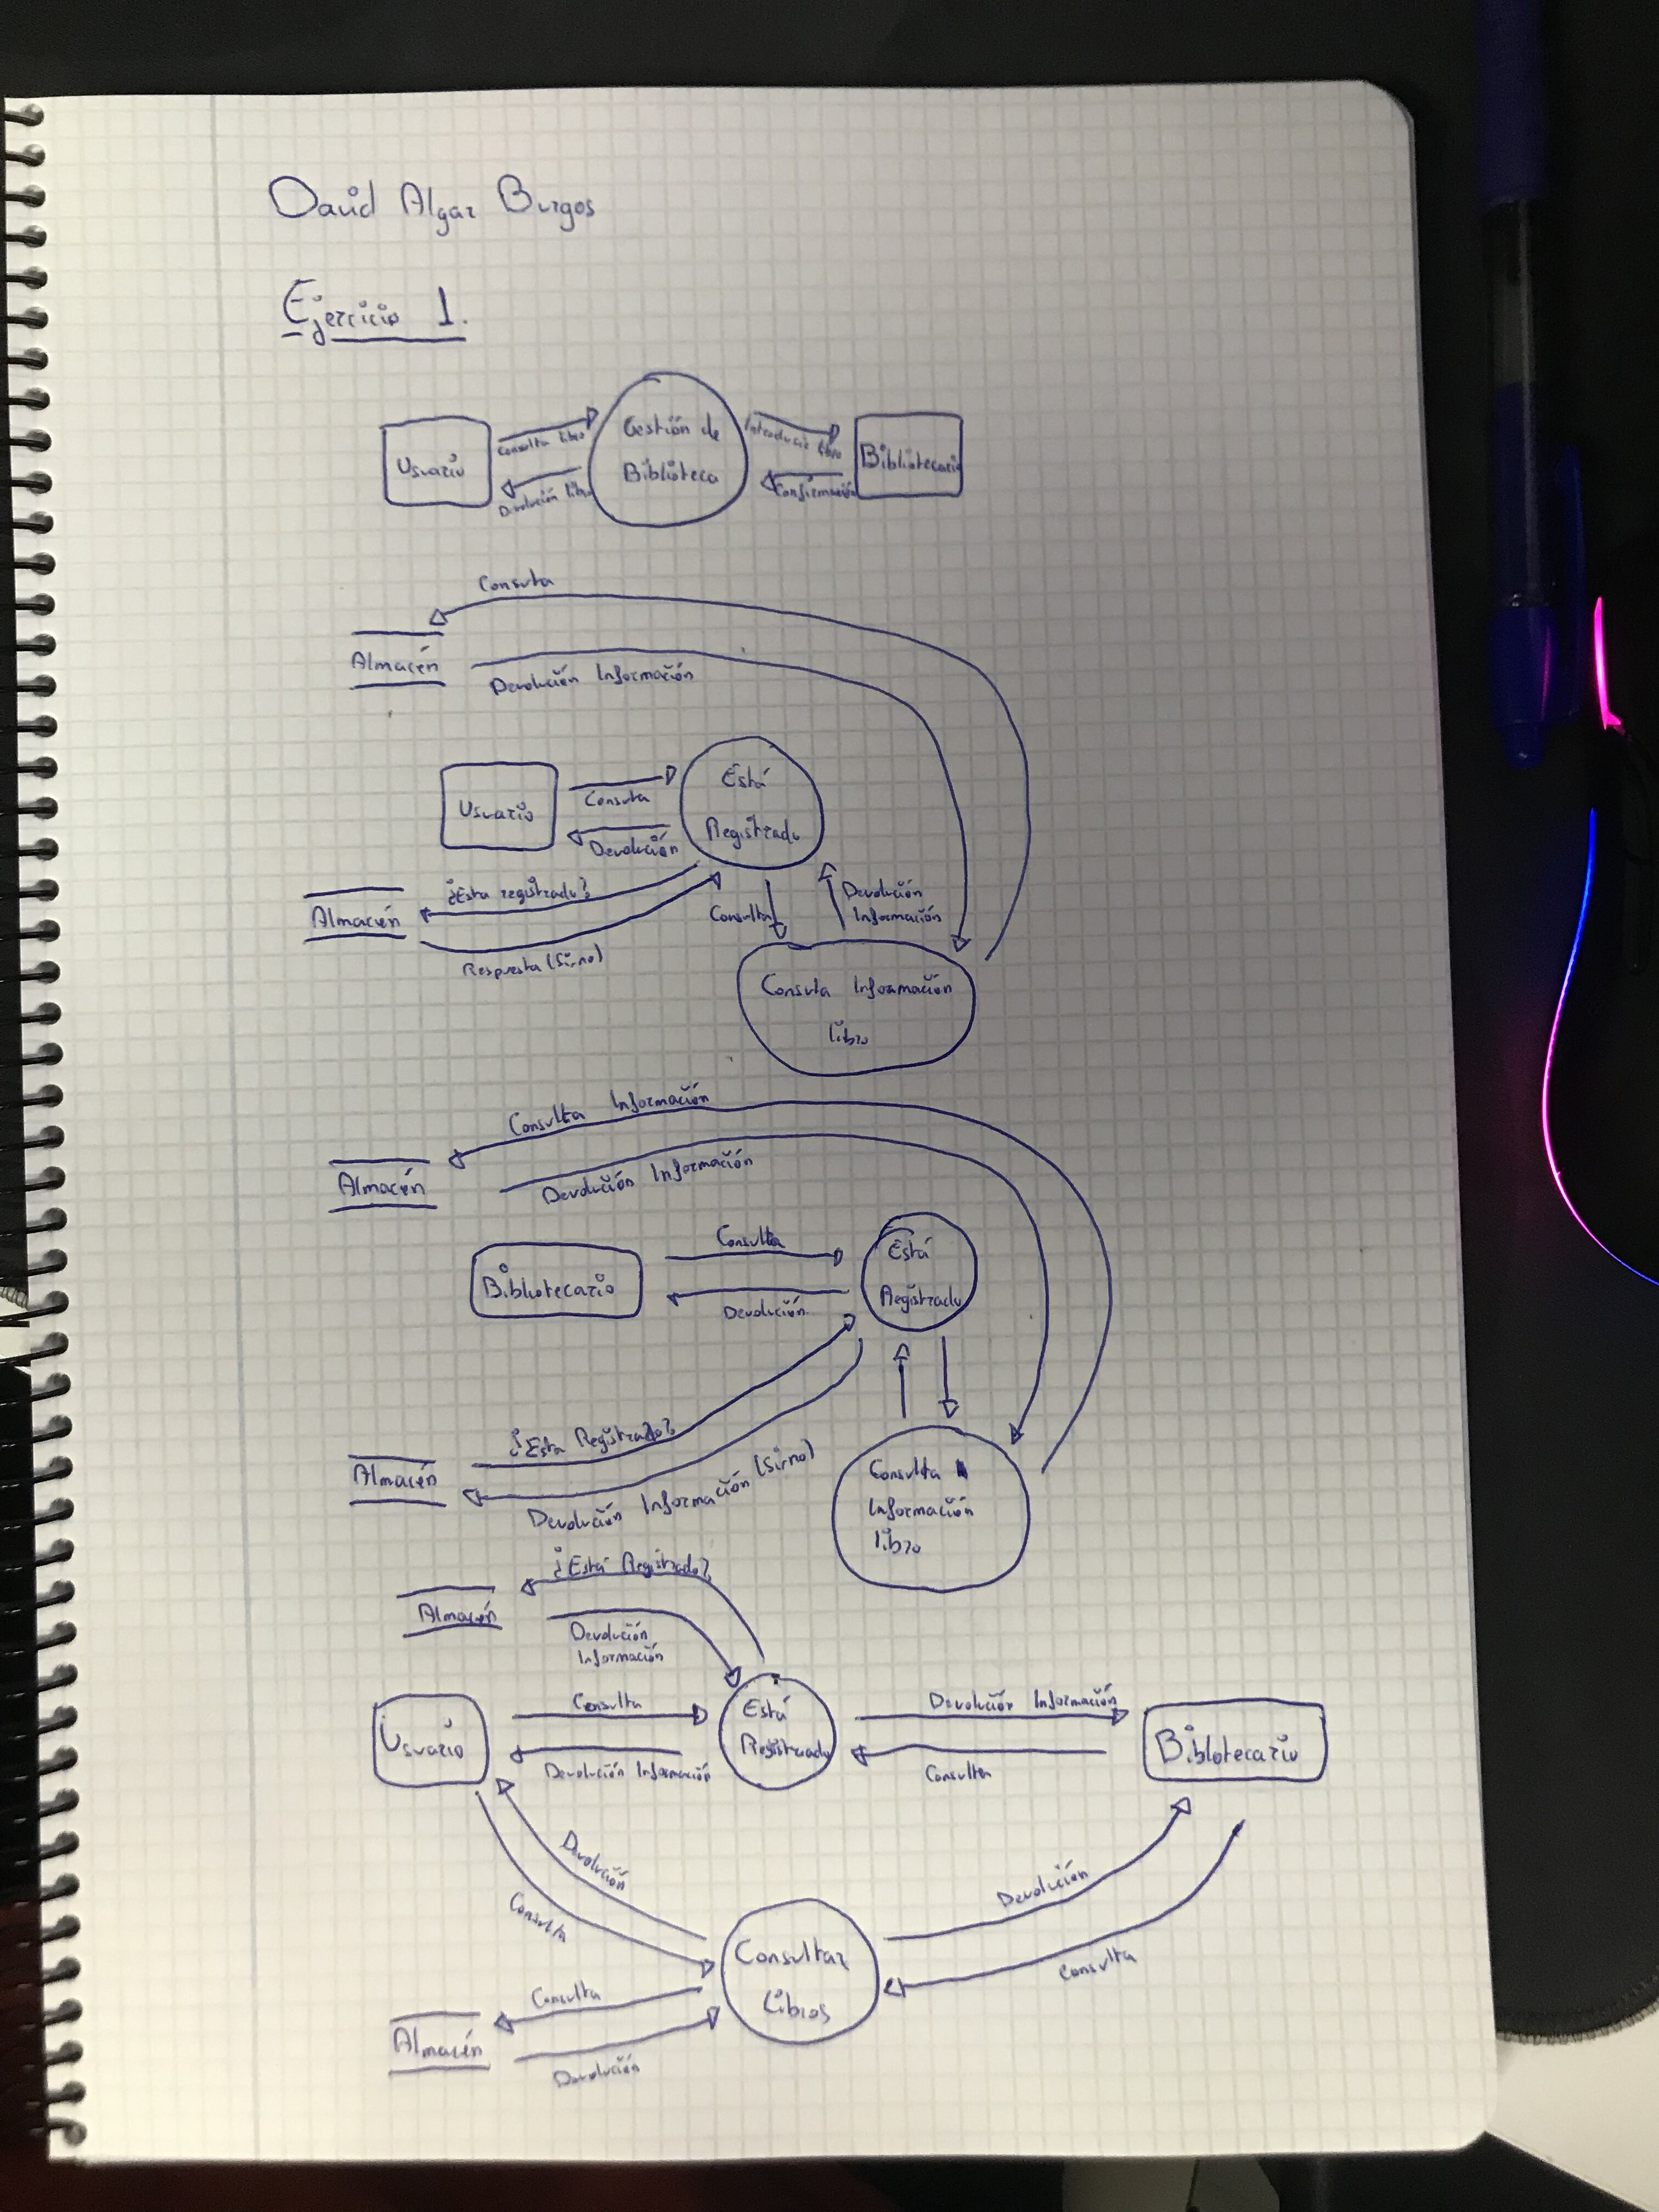 David Algar Burgos
Ejercicio 1.
Usuario
Consulta libro
Devolución libro
Gestión de
Biblioteca
Introducir libro
Confirmación
Bibliotecario
Consulta
Almacén
Devolución Información
Usuario
Consulta
Devolución
Está
Registrado
Almacén
¿Esta registrado?
Respuesta (Si/no)
Consulta
Devolución
Información
Consulta Información
libro
Consulta Información
Almacén
Devolución Información
Bibliotecario
Consulta
Devolución
Está
Registrado
Almacén
¿Esta Registrado?
Devolución Información (Si/no)
Consulta
Información
libro
¿Está Registrado?
Almacén
Devolución
Información
Usuario
Consulta
Devolución Información
Está
Registrado
Devolución Información
Consulta
Biblotecario
Devolución
Consulta
Devolución
Consulta
Consultar
Libros
Almacén
Consulta
Devolución